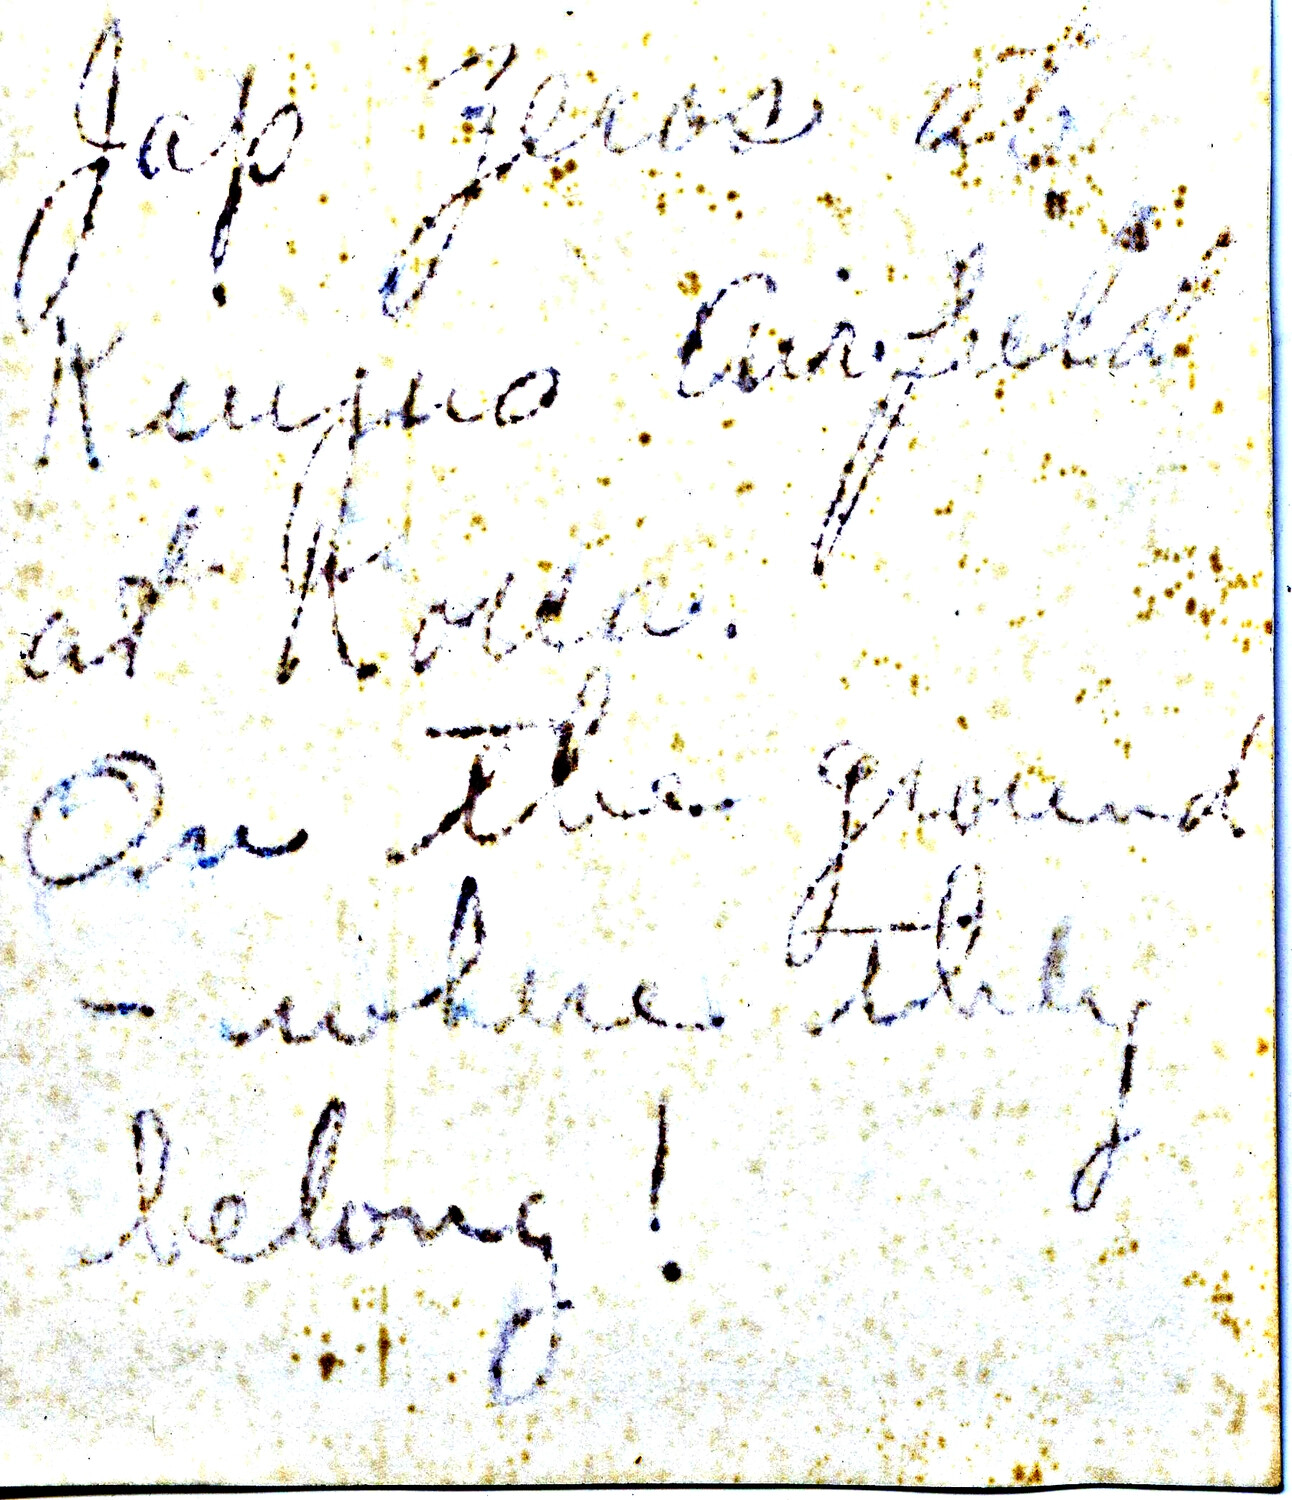 Jap Zeros at
Airfield
at Korea.
On the ground
- where they
belong!